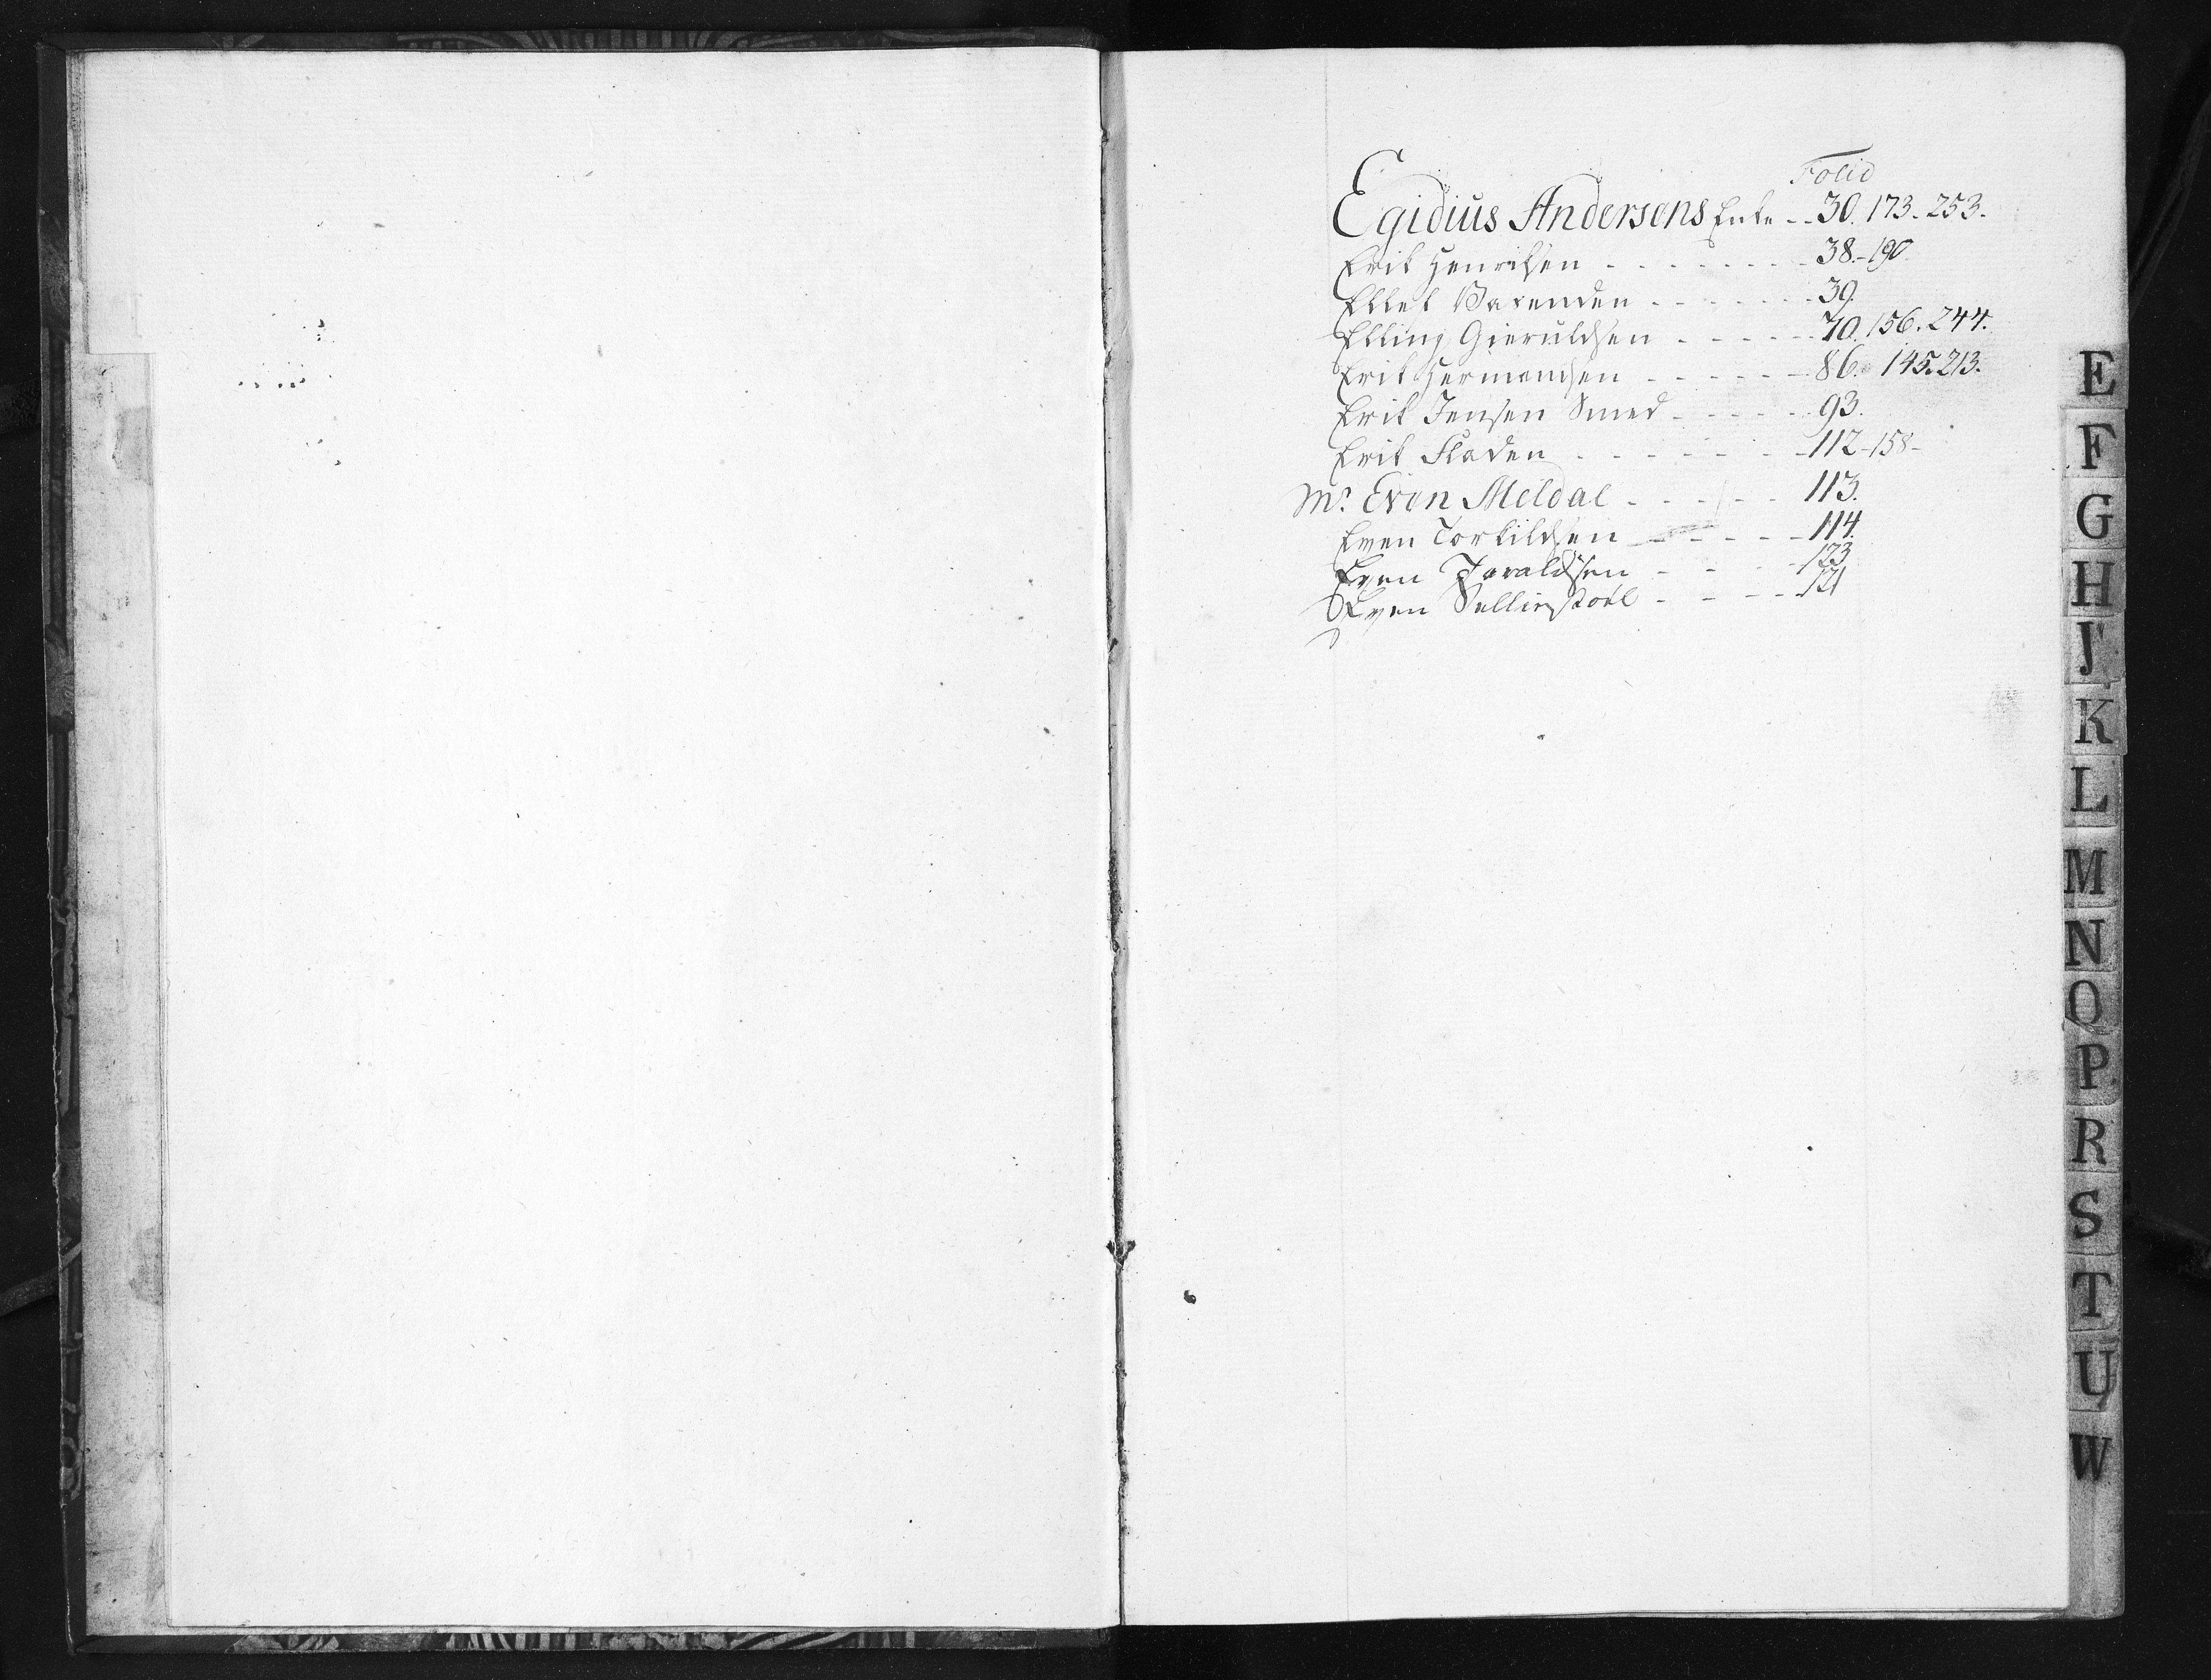 Folio
Egidius Andersens Enke - - 30. 173. 253.
Erik Henrichsen - - - - - - - 38. - 190.
Ellef - - - - - - - 39.
Elling Gieruldsen - - - - - 70. 156. 244.
Erik Hermandsen - - - - - 86. 145. 213.
Erik Jensen Smed - - - - - 93.
Erik Fladen - - - - - - - 112 - 158 -
Mr. Even Meldal - - - - - 113.
Even Torkildsen - - - - - 114.
Even - - - - 123
Even - - - - 121
E
F
G
H
J
K
L
M
N
O
P
R
S
T
U
W